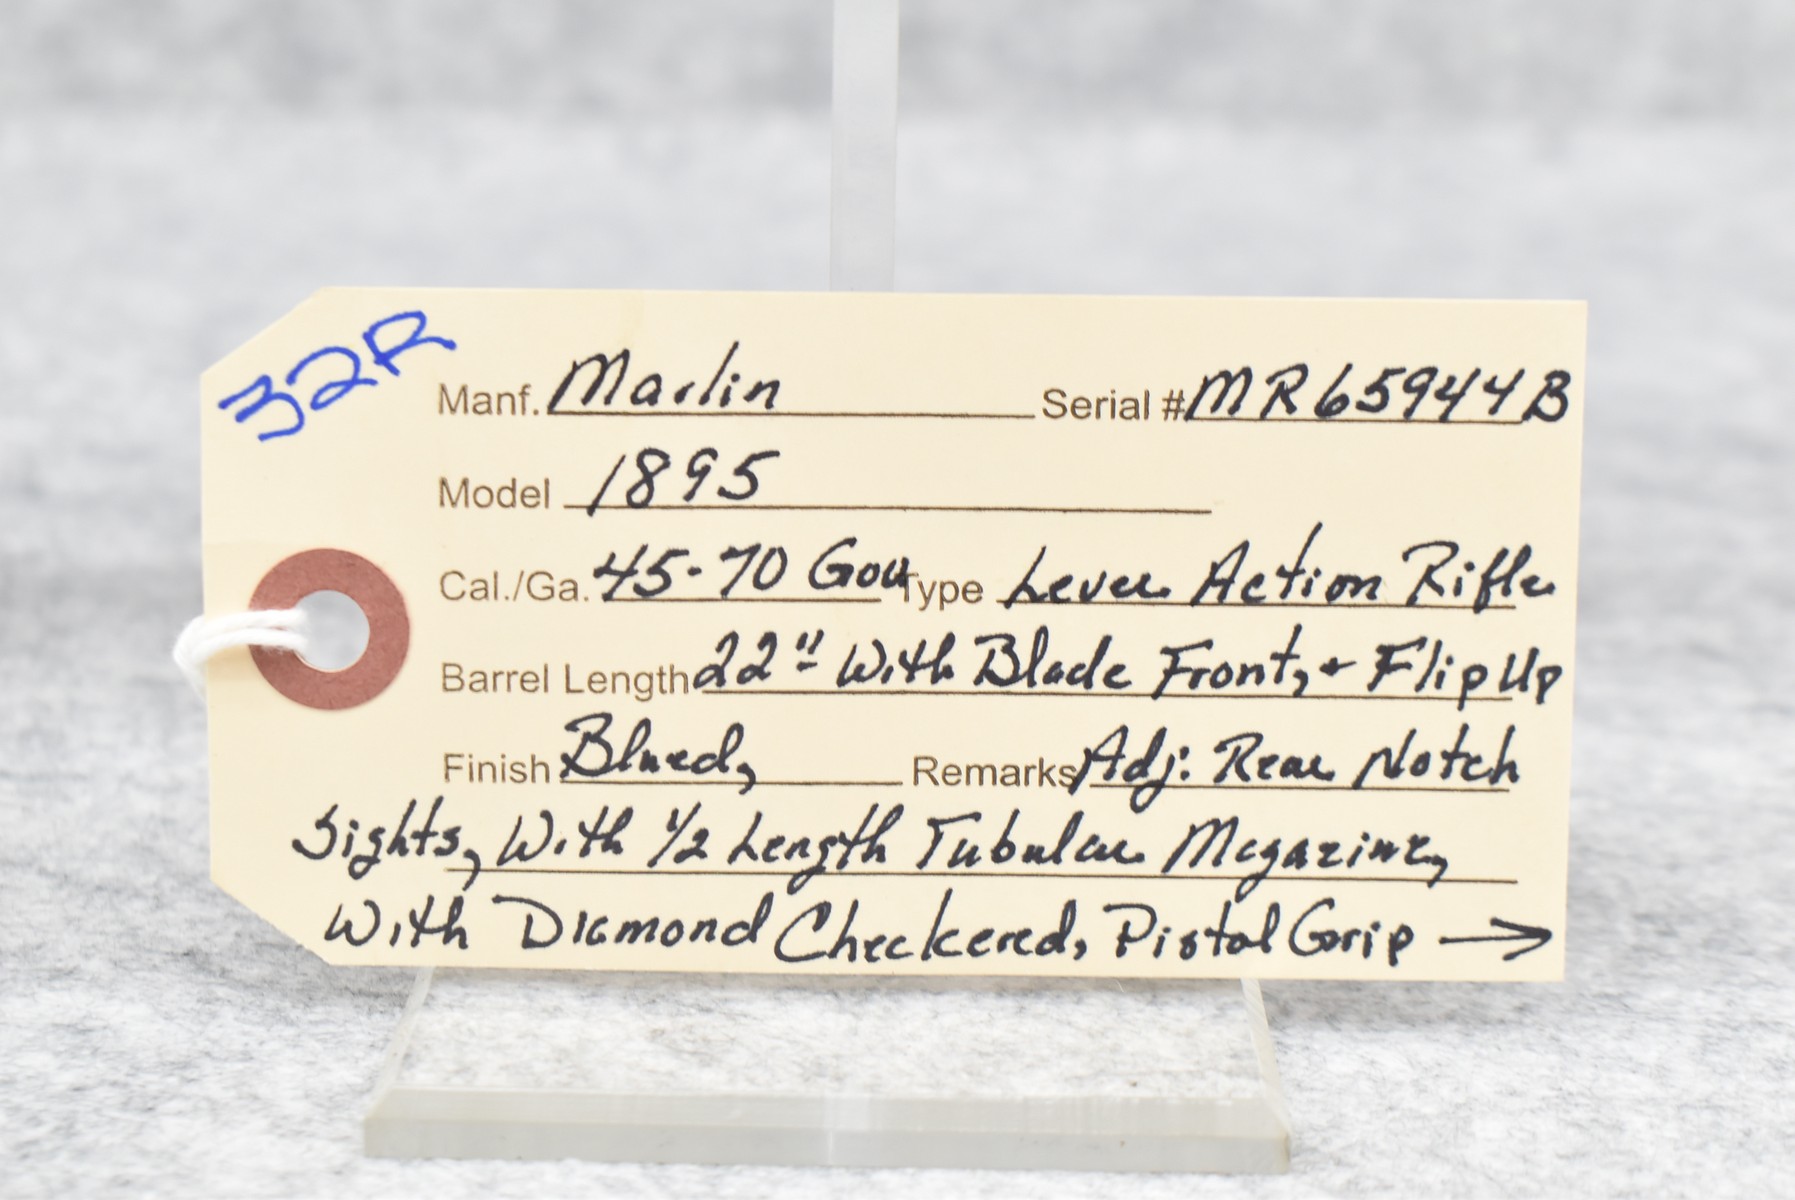 32R
Manf. Marlin Serial # MR65944B
Model 1895
Cal./Ga. 45-70 Gov Type Lever Action Rifle
Barrel Length 22" With Blade Front, + Flip Up
Finish Blued, Remarks Adj. Rear Notch
Sights, With 1/2 Length Tubular Magazine,
With Diamond Checkered, Pistol Grip →